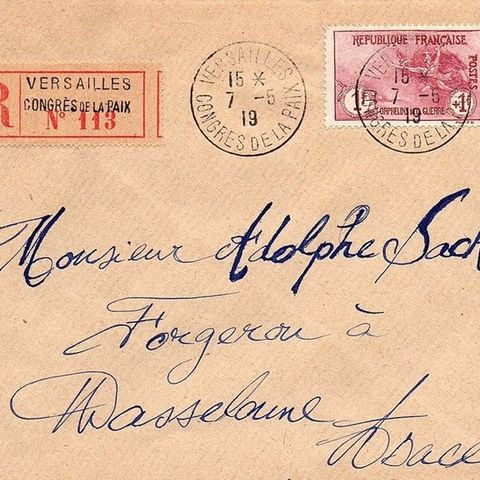 R
VERSAILLES
CONGRÈS DE LA PAIX
N° 113
VERSAILLES
CONGRES DE LA PAIX
15 *
7 -5
19
REPUBLIQUE FRANÇAISE
POSTES
1F
+1F
ORPHELINS DE LA GUERRE
15 *
7 -5
19
CONGRES DE LA
Monsieur Adolphe Sach
Forgeron à
Wasselonne
Alsace